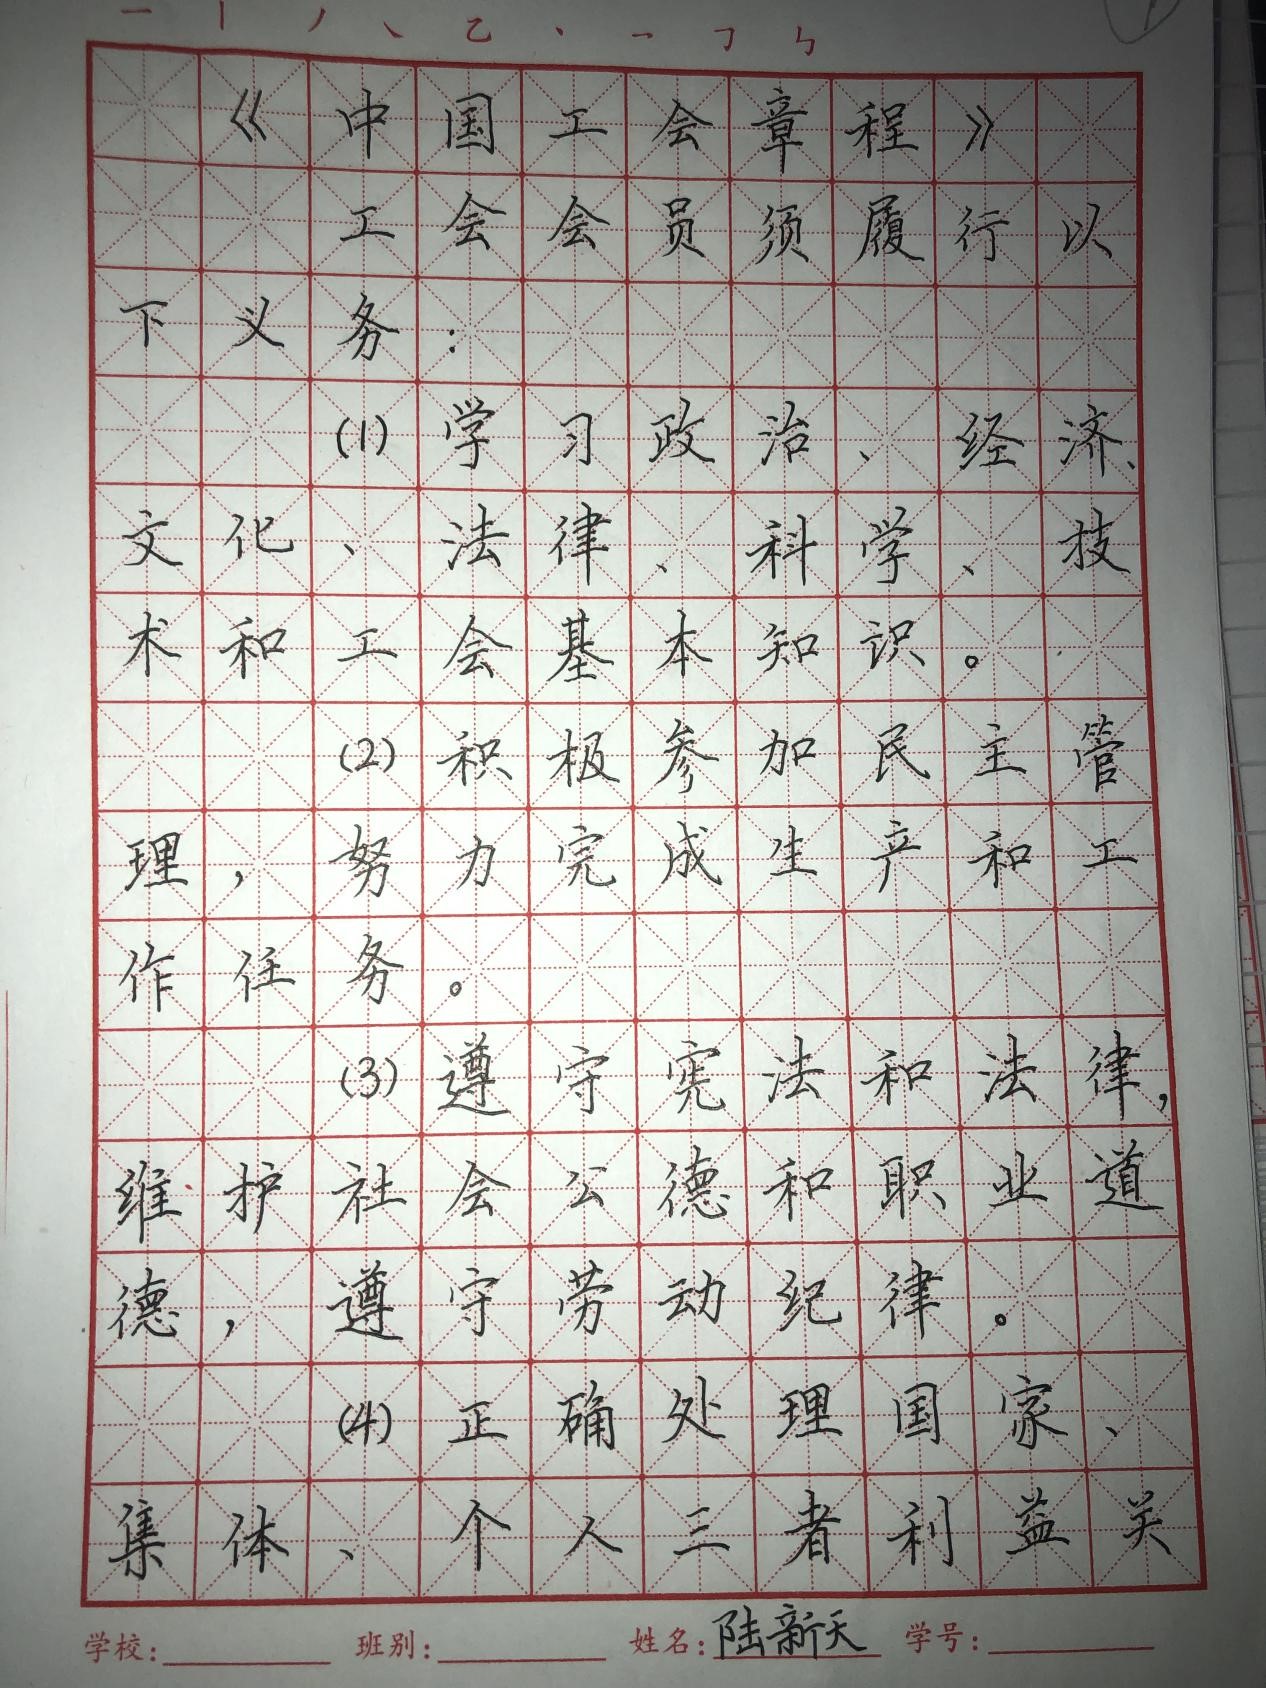 一丨丿㇏乙丶㇖㇆㇉
《中国工会章程》
工会会员须履行以
下义务：
(1)学习政治、经济、
文化、法律、科学、技
术和工会基本知识。
(2)积极参加民主管
理，努力完成生产和工
作任务。
(3)遵守宪法和法律，
维护社会公德和职业道
德，遵守劳动纪律。
(4)正确处理国家、
集体、个人三者利益关
学校： 班别： 姓名：陆新天 学号：